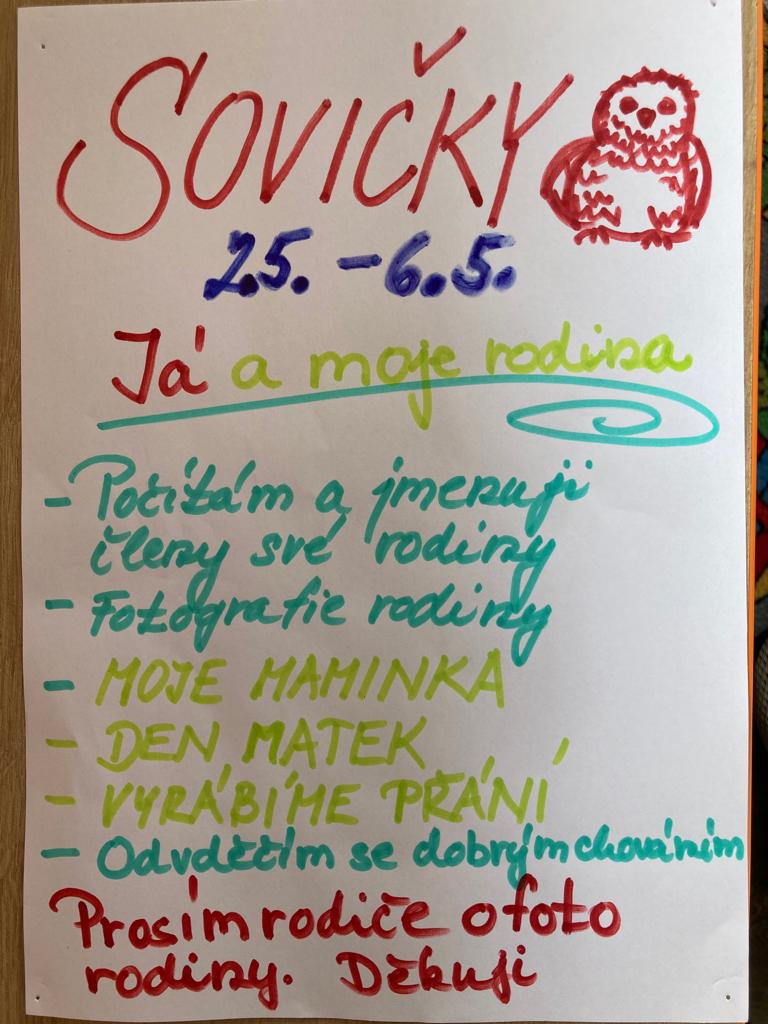 SOVIČKY
2.5. - 6.5.
Já a moje rodina
- Počítám a jmenuji
členy své rodiny
- Fotografie rodiny
- MOJE MAMINKA
- DEN MATEK
- VYRÁBÍME PŘÁNÍ
- Odvděčím se dobrým chováním
Prosím rodiče o foto
rodiny. Děkuji